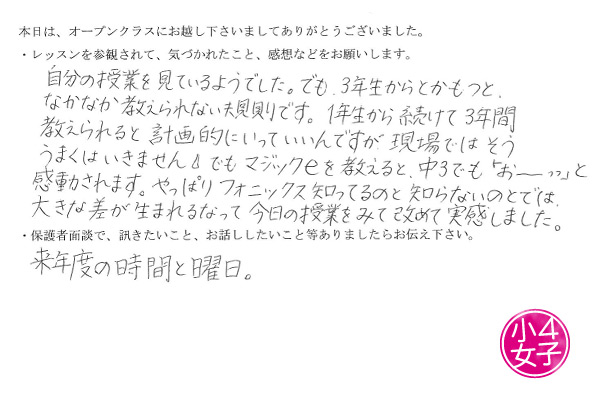 本日は、オープンクラスにお越し下さいましてありがとうございました。
・レッスンを参観されて、気づかれたこと、感想などをお願いします。
自分の授業を見ているようでした。でも、3年生からとかもつと、
なかなか教えられない規則です。1年生から続けて3年間
教えられると計画的にいっていいんですが現場ではそう
うまくはいきません。でもマジックeを教えると、中3でも「おーっっ」と
感動されます。やっぱりフォニックス知ってるのと知らないのとでは、
大きな差が生まれるなって今日の授業をみて改めて実感しました。
・保護者面談で、訊きたいこと、お話ししたいこと等ありましたらお伝え下さい。
来年度の時間と曜日。
小4
女子